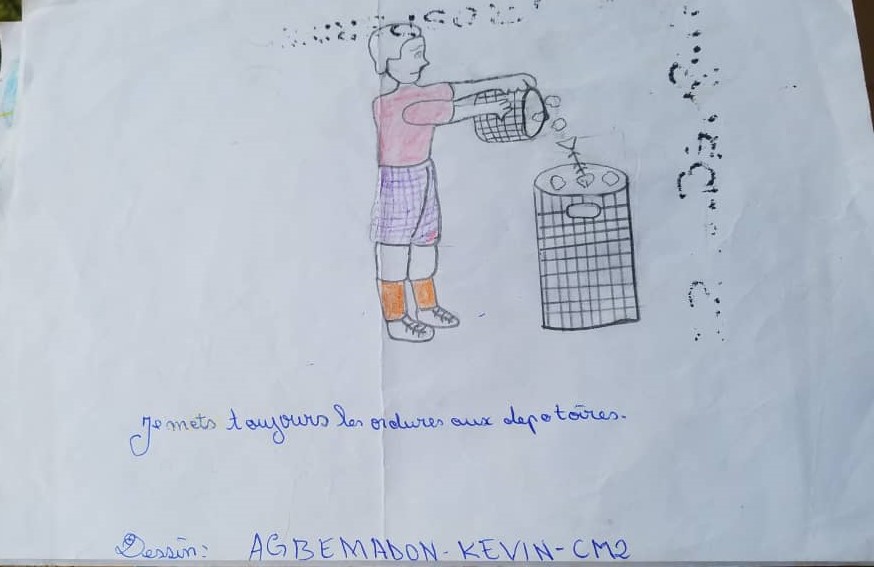 Je mets toujours les ordures aux depotoîres.
Dessin: AGBEMADON-KEVIN-CM2